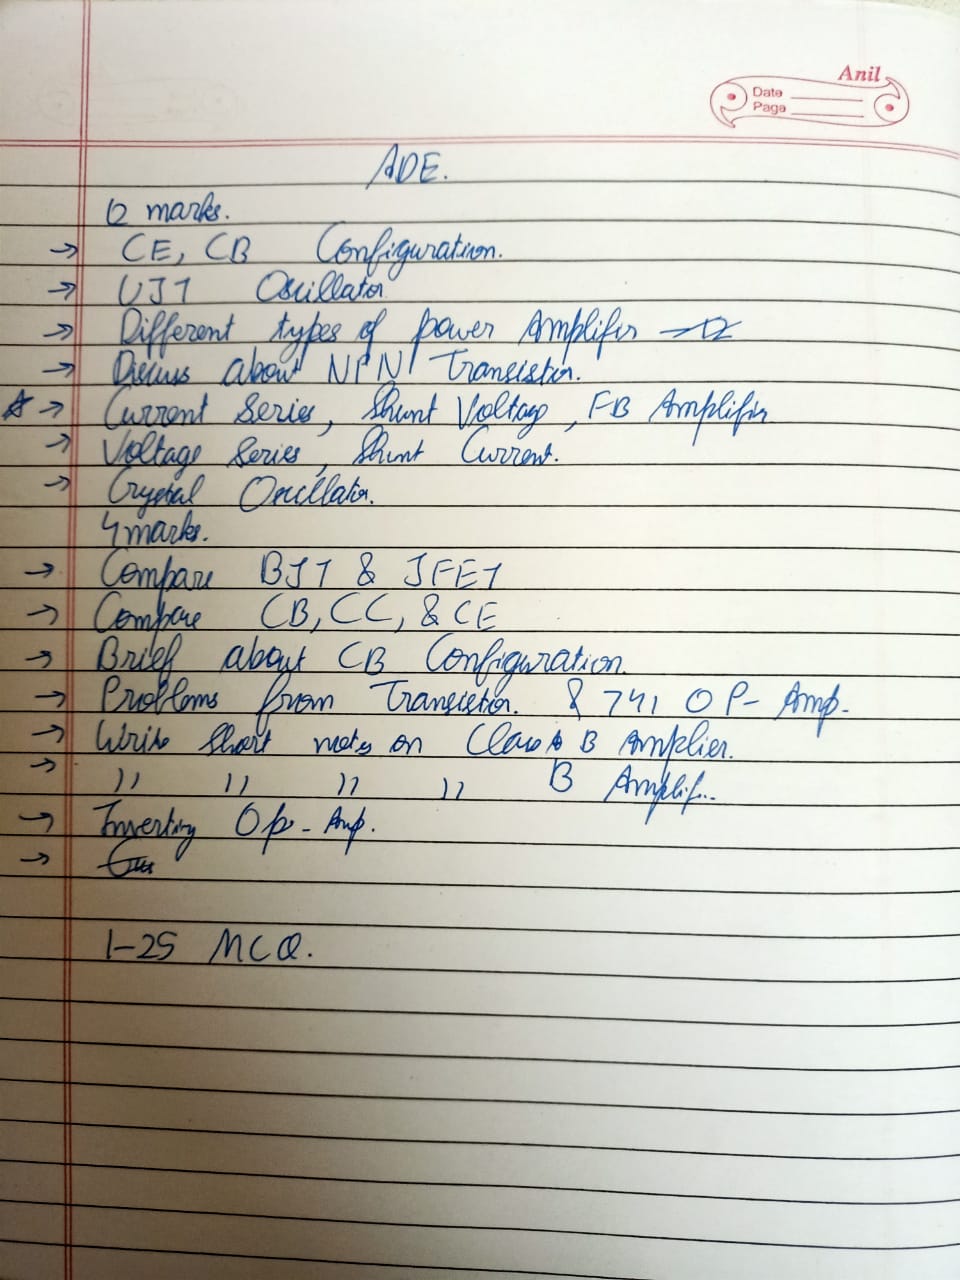 Anil
Date
Page
ADE.
12 marks.
→ CE, CB Configuration.
→ UJT Oscillator
→ Different types of power Amplifier
→ Discuss about NPN Transistor.
☆ → Current Series, Shunt Voltage, FB Amplifier
→ Voltage Series, Shunt Current.
→ Crystal Oscillator.
4 marks.
→ Compare BJT & JFET
→ Compare CB, CC, & CE
→ Brief about CB Configuration.
→ Problems from Transistor. & 741 OP-Amp.
→ Write Short notes on Class B Amplier.
→ " " " " B Amplifi..
→ Inverting Op-Amp.
→
1-25 MCQ.